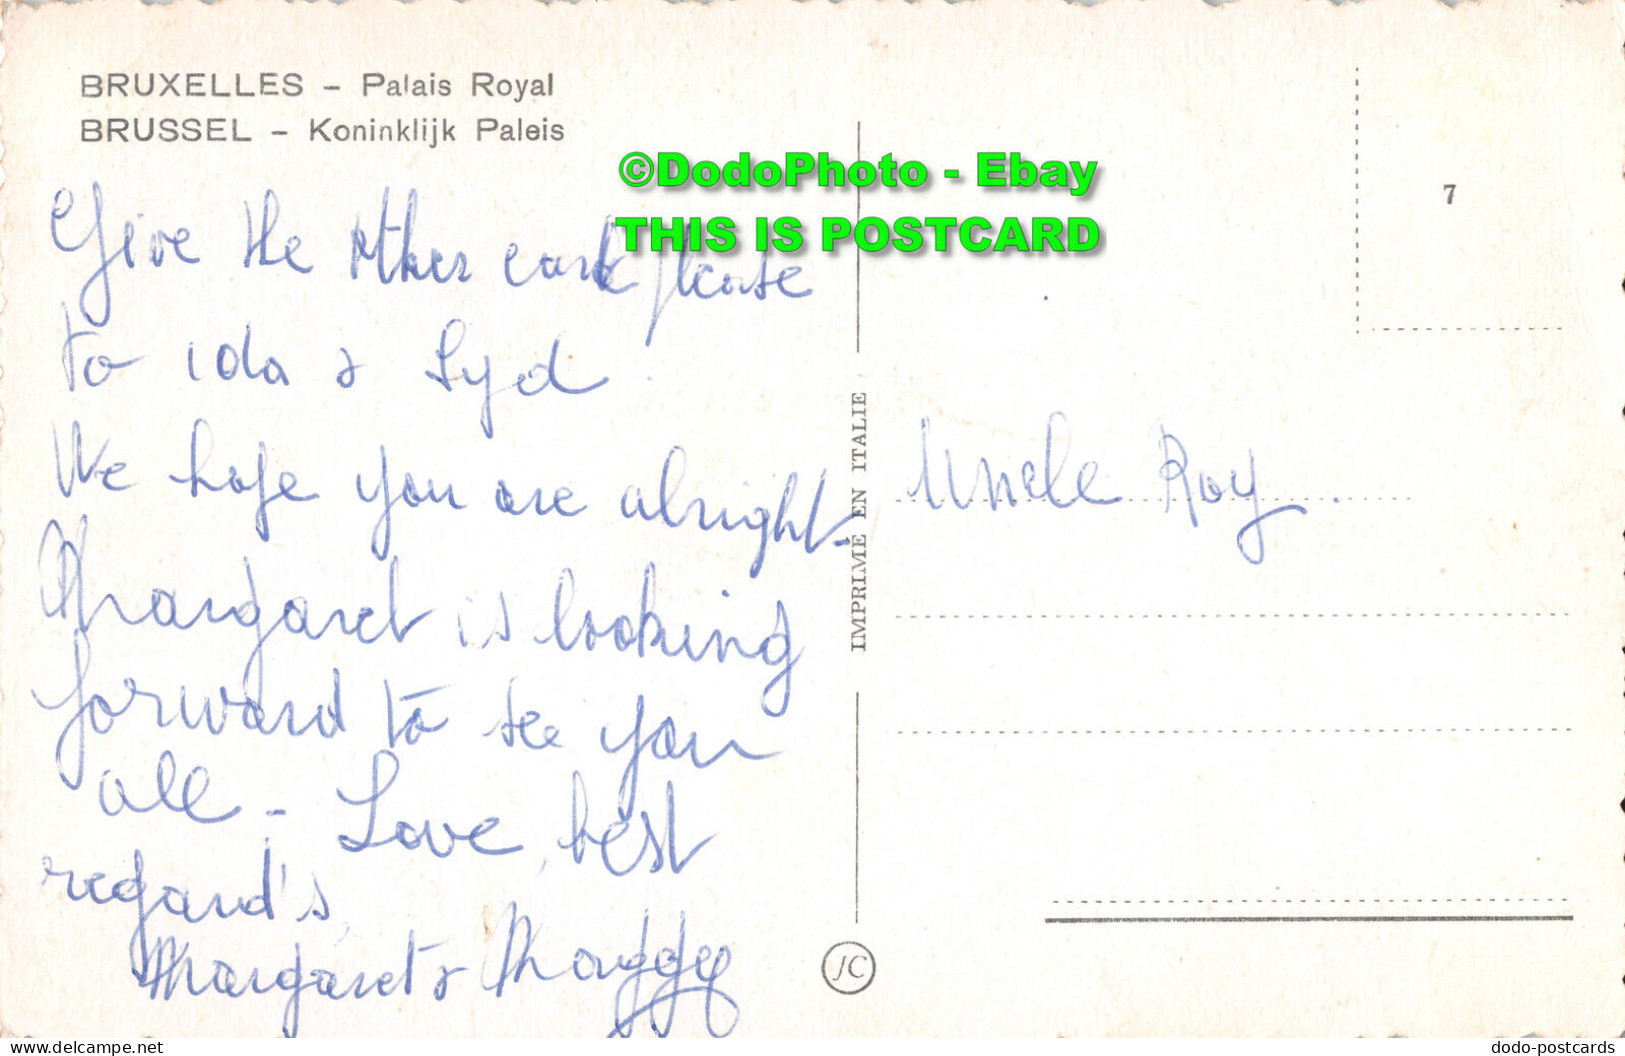 BRUXELLES – Palais Royal
BRUSSEL – Koninklijk Paleis
©DodoPhoto - Ebay
THIS IS POSTCARD
7
Give the other card please
to ida & Syd.
We hope you are alright-
Margaret is looking
forward to see you
all - Love, best
regard's,
Margaret & Maggy
IMPRIME EN ITALIE
Uncle Roy.
JC
www.delcampe.net
dodo-postcards